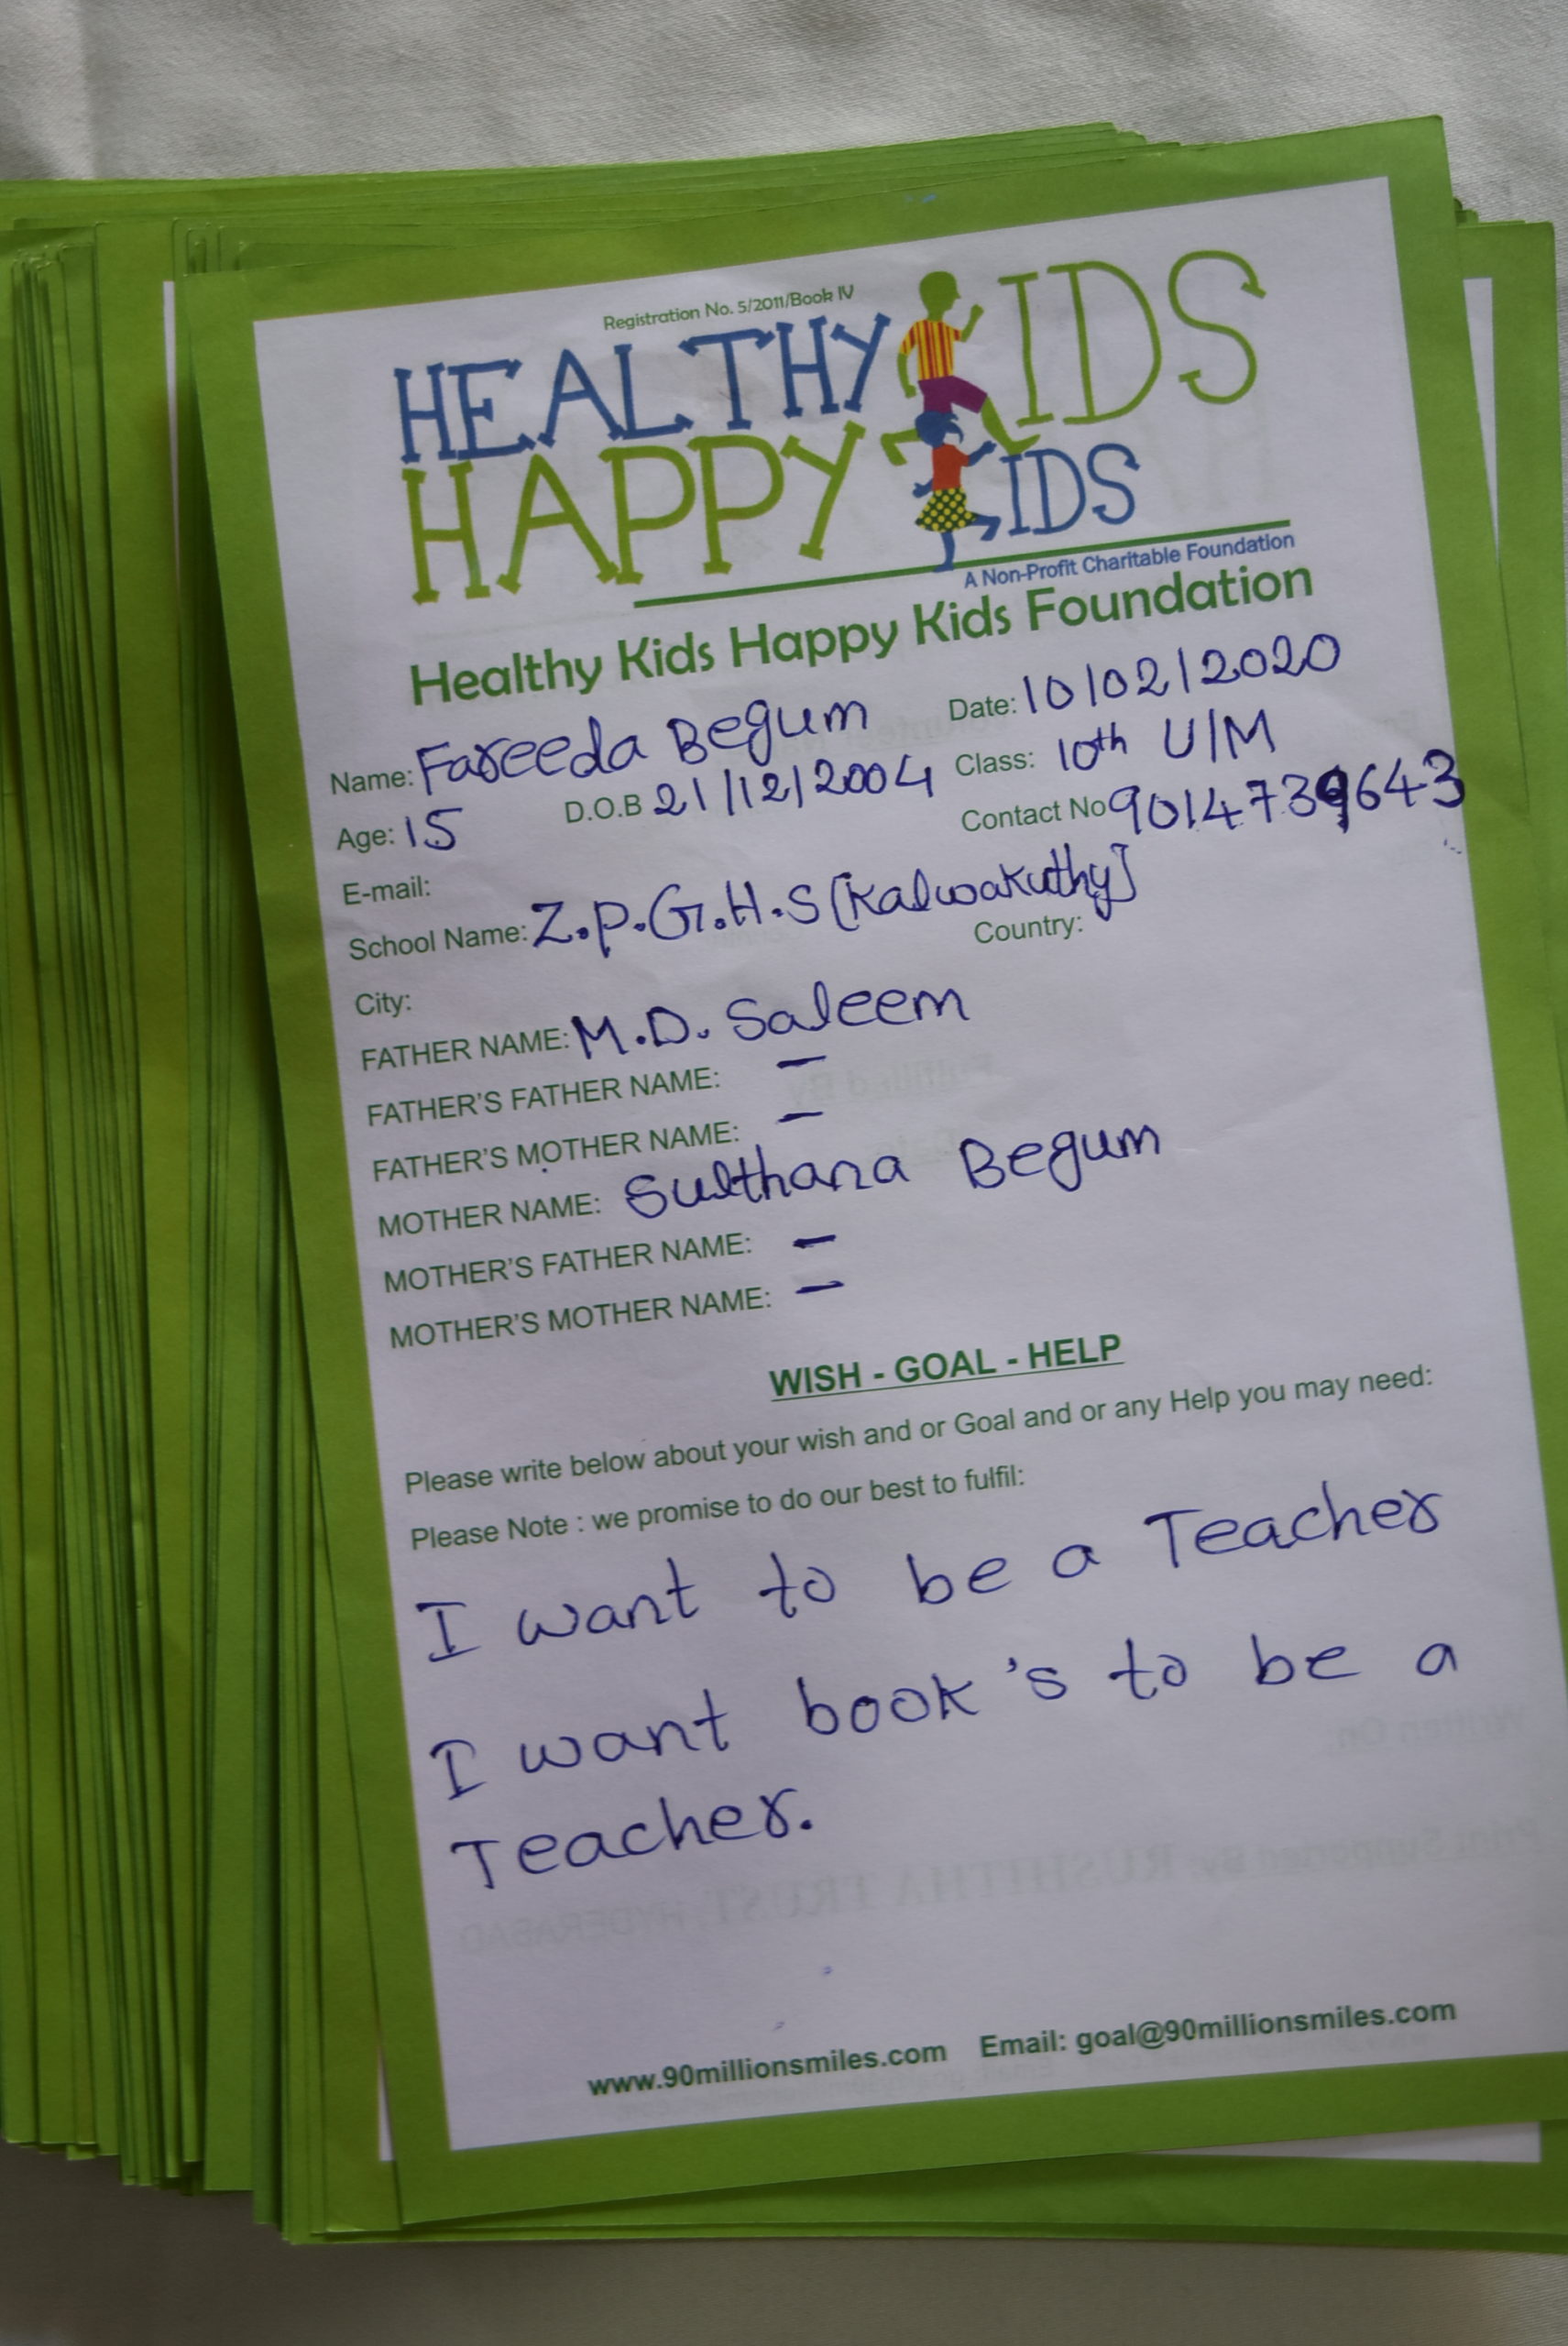 Registration No. 5/2011/Book IV
HEALTHY KIDS
HAPPY KIDS
A Non-Profit Charitable Foundation
Healthy Kids Happy Kids Foundation
Name: Fareeda Begum Date: 10/02/2020
Age: 15 D.O.B 21/12/2004 Class: 10th U/M
E-mail: Contact No 9014739643
School Name: Z.P.G.H.S [Kalwakuthy]
City: Country:
FATHER NAME: M.D. Saleem
FATHER'S FATHER NAME: –
FATHER'S MOTHER NAME: –
MOTHER NAME: Sulthana Begum
MOTHER'S FATHER NAME: –
MOTHER'S MOTHER NAME: –
WISH - GOAL - HELP
Please write below about your wish and or Goal and or any Help you may need:
Please Note : we promise to do our best to fulfil:
I want to be a Teacher
I want book's to be a
Teacher.
www.90millionsmiles.com Email: goal@90millionsmiles.com